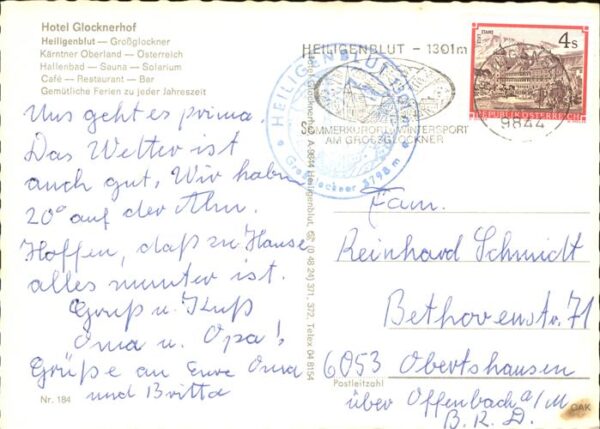 Hotel Glocknerhof
Heiligenblut — Großglockner
Kärntner Oberland — Österreich
Hallenbad — Sauna — Solarium
Café — Restaurant — Bar
Gemütliche Ferien zu jeder Jahreszeit
Uns geht es prima.
Das Wetter ist
auch gut, Wir haben
20° auf der Alm.
Hoffen, daß zu Hause
alles munter ist.
Gruß u. Kuß
Oma u. Opa!
Grüße an Eure Oma
und Britta
Nr. 184
Glocknerhof, A-9844 Heiligenblut, (0 48 24) 371, 372, Telex 04 8154
HEILIGENBLUT - 1301m
SOMMERKURORT WINTERSPORT
AM GROSSGLOCKNER
HEILIGENBLUT 1301 m
Großglockner 3798 m
9844
STIFT
4 S
REPUBLIK ÖSTERREICH
Fam.
Reinhard Schmidt
Bethovenstr. 71
6053 Obertshausen
Postleitzahl
über Offenbach a/M
B.R.D.
OAK